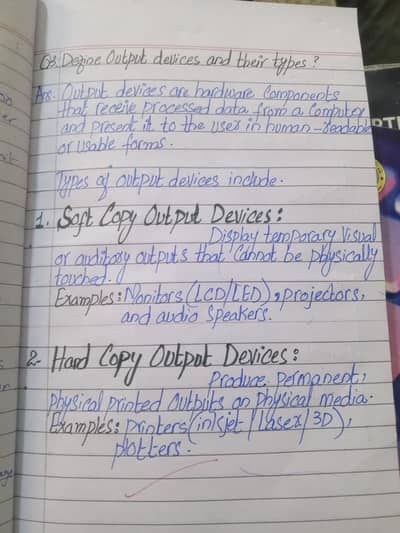 Q3: Define Output devices and their types?
Ans. Output devices are hardware components
that receive processed data from a computer
and present it to the user in human-readable
or usable forms.
Types of output devices include.
1. Soft Copy Output Devices:
Display temporary visual
or auditory outputs that cannot be physically
touched.
Examples: Monitors (LCD/LED), projectors,
and audio speakers.
2- Hard Copy Output Devices:
Produce, permanent,
physical printed outputs on physical media.
Examples: Printers (inkjet / Laser / 3D),
plotters.